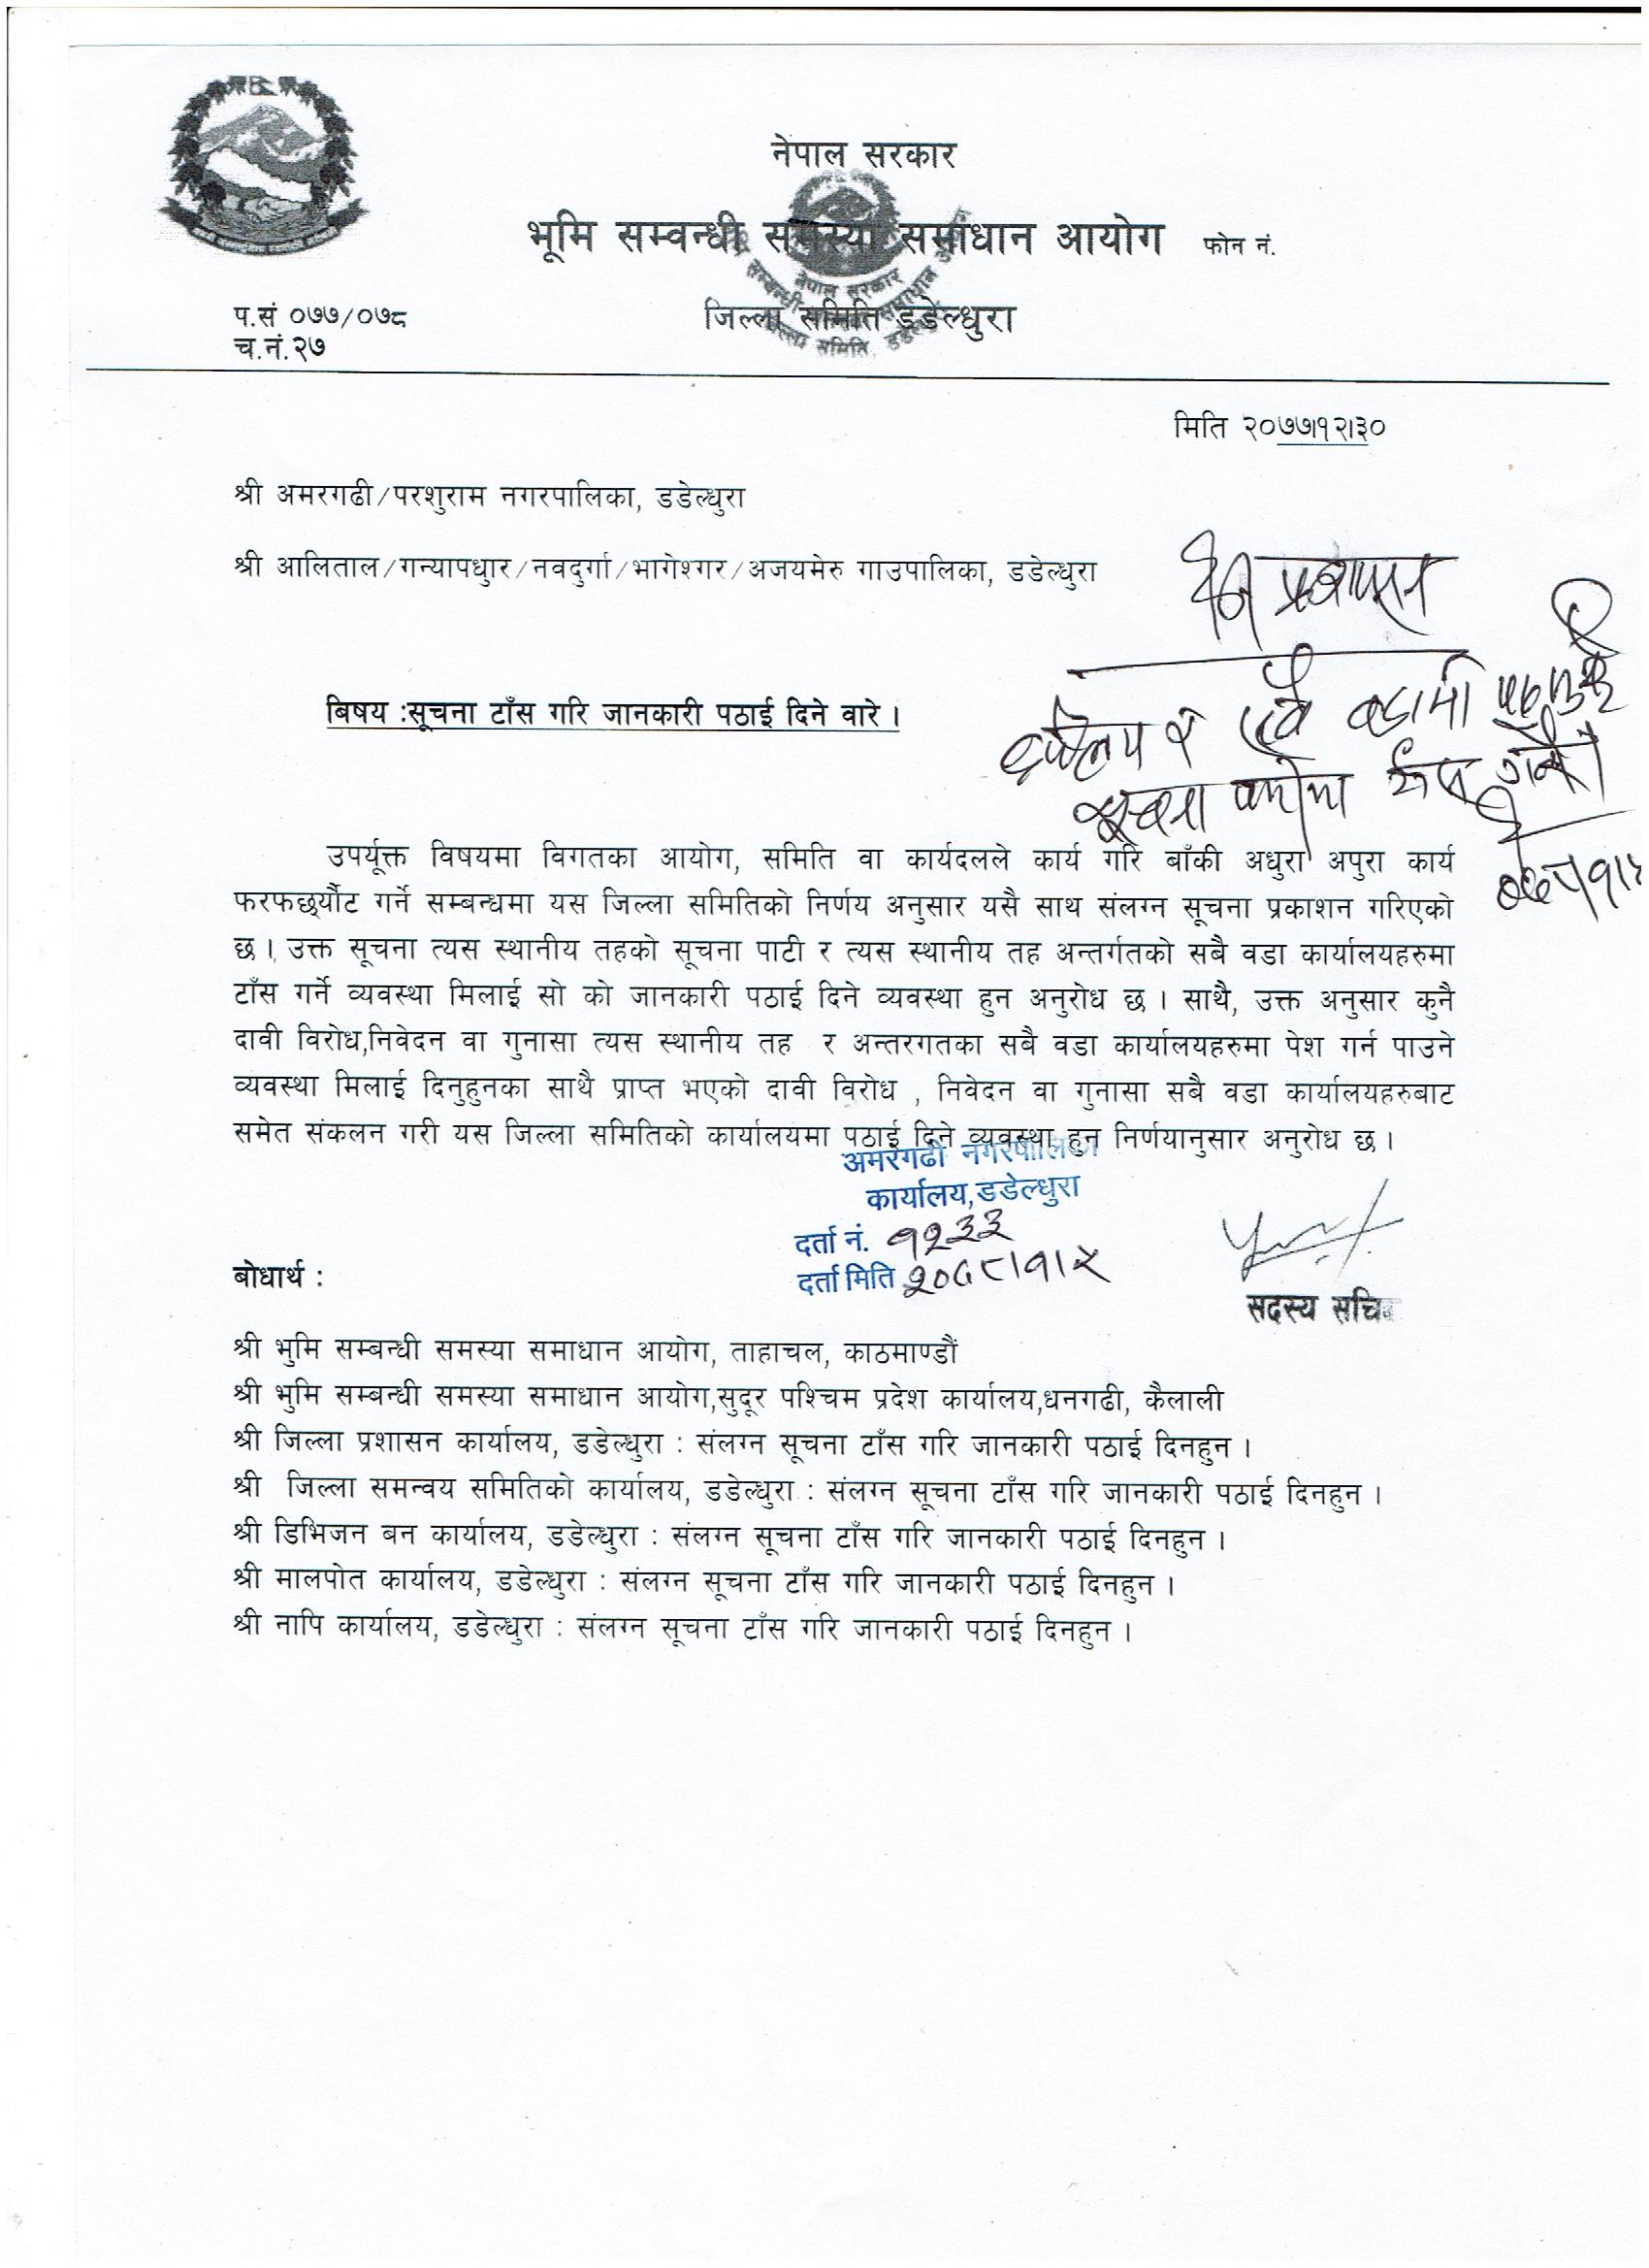 नेपाल सरकार
भूमि सम्वन्धी समस्या समाधान आयोग फोन नं.
जिल्ला समिति डडेल्धुरा
नेपाल सरकार
प.सं ०७७/०७८
च.नं.२७
मिति २०७७।१२।३०
श्री अमरगढी/परशुराम नगरपालिका, डडेल्धुरा
श्री आलिताल/गन्यापधुार/नवदुर्गा/भागेश्गर/अजयमेरु गाउपालिका, डडेल्धुरा
बिषय :सूचना टाँस गरि जानकारी पठाई दिने वारे ।
उपर्यूक्त विषयमा विगतका आयोग, समिति वा कार्यदलले कार्य गरि बाँकी अधुरा अपुरा कार्य
फरफछ्र्यौट गर्ने सम्बन्धमा यस जिल्ला समितिको निर्णय अनुसार यसै साथ संलग्न सूचना प्रकाशन गरिएको
छ । उक्त सूचना त्यस स्थानीय तहको सूचना पाटी र त्यस स्थानीय तह अन्तर्गतको सबै वडा कार्यालयहरुमा
टाँस गर्ने व्यवस्था मिलाई सो को जानकारी पठाई दिने व्यवस्था हुन अनुरोध छ । साथै, उक्त अनुसार कुनै
दावी विरोध,निवेदन वा गुनासा त्यस स्थानीय तह र अन्तरगतका सबै वडा कार्यालयहरुमा पेश गर्न पाउने
व्यवस्था मिलाई दिनुहुनका साथै प्राप्त भएको दावी विरोध , निवेदन वा गुनासा सबै वडा कार्यालयहरुबाट
समेत संकलन गरी यस जिल्ला समितिको कार्यालयमा पठाई दिने व्यवस्था हुन निर्णयानुसार अनुरोध छ ।
अमरगढी नगरपालिका
कार्यालय,डडेल्धुरा
दर्ता नं. १२३३
दर्ता मिति २०७८।१।५
सदस्य सचिव
बोधार्थ :
श्री भुमि सम्बन्धी समस्या समाधान आयोग, ताहाचल, काठमाण्डौं
श्री भुमि सम्बन्धी समस्या समाधान आयोग,सुदूर पश्चिम प्रदेश कार्यालय,धनगढी, कैलाली
श्री जिल्ला प्रशासन कार्यालय, डडेल्धुरा : संलग्न सूचना टाँस गरि जानकारी पठाई दिनहुन ।
श्री जिल्ला समन्वय समितिको कार्यालय, डडेल्धुरा : संलग्न सूचना टाँस गरि जानकारी पठाई दिनहुन ।
श्री डिभिजन बन कार्यालय, डडेल्धुरा : संलग्न सूचना टाँस गरि जानकारी पठाई दिनहुन ।
श्री मालपोत कार्यालय, डडेल्धुरा : संलग्न सूचना टाँस गरि जानकारी पठाई दिनहुन ।
श्री नापि कार्यालय, डडेल्धुरा : संलग्न सूचना टाँस गरि जानकारी पठाई दिनहुन ।